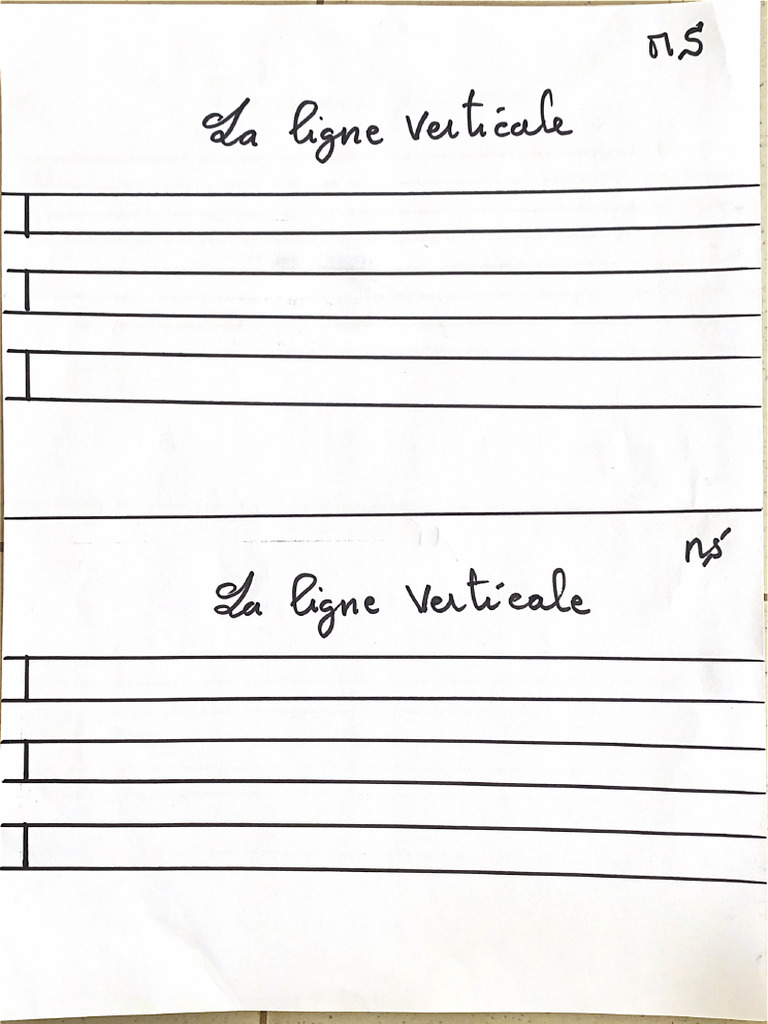 M.S
La ligne verticale
M.S
La ligne verticale